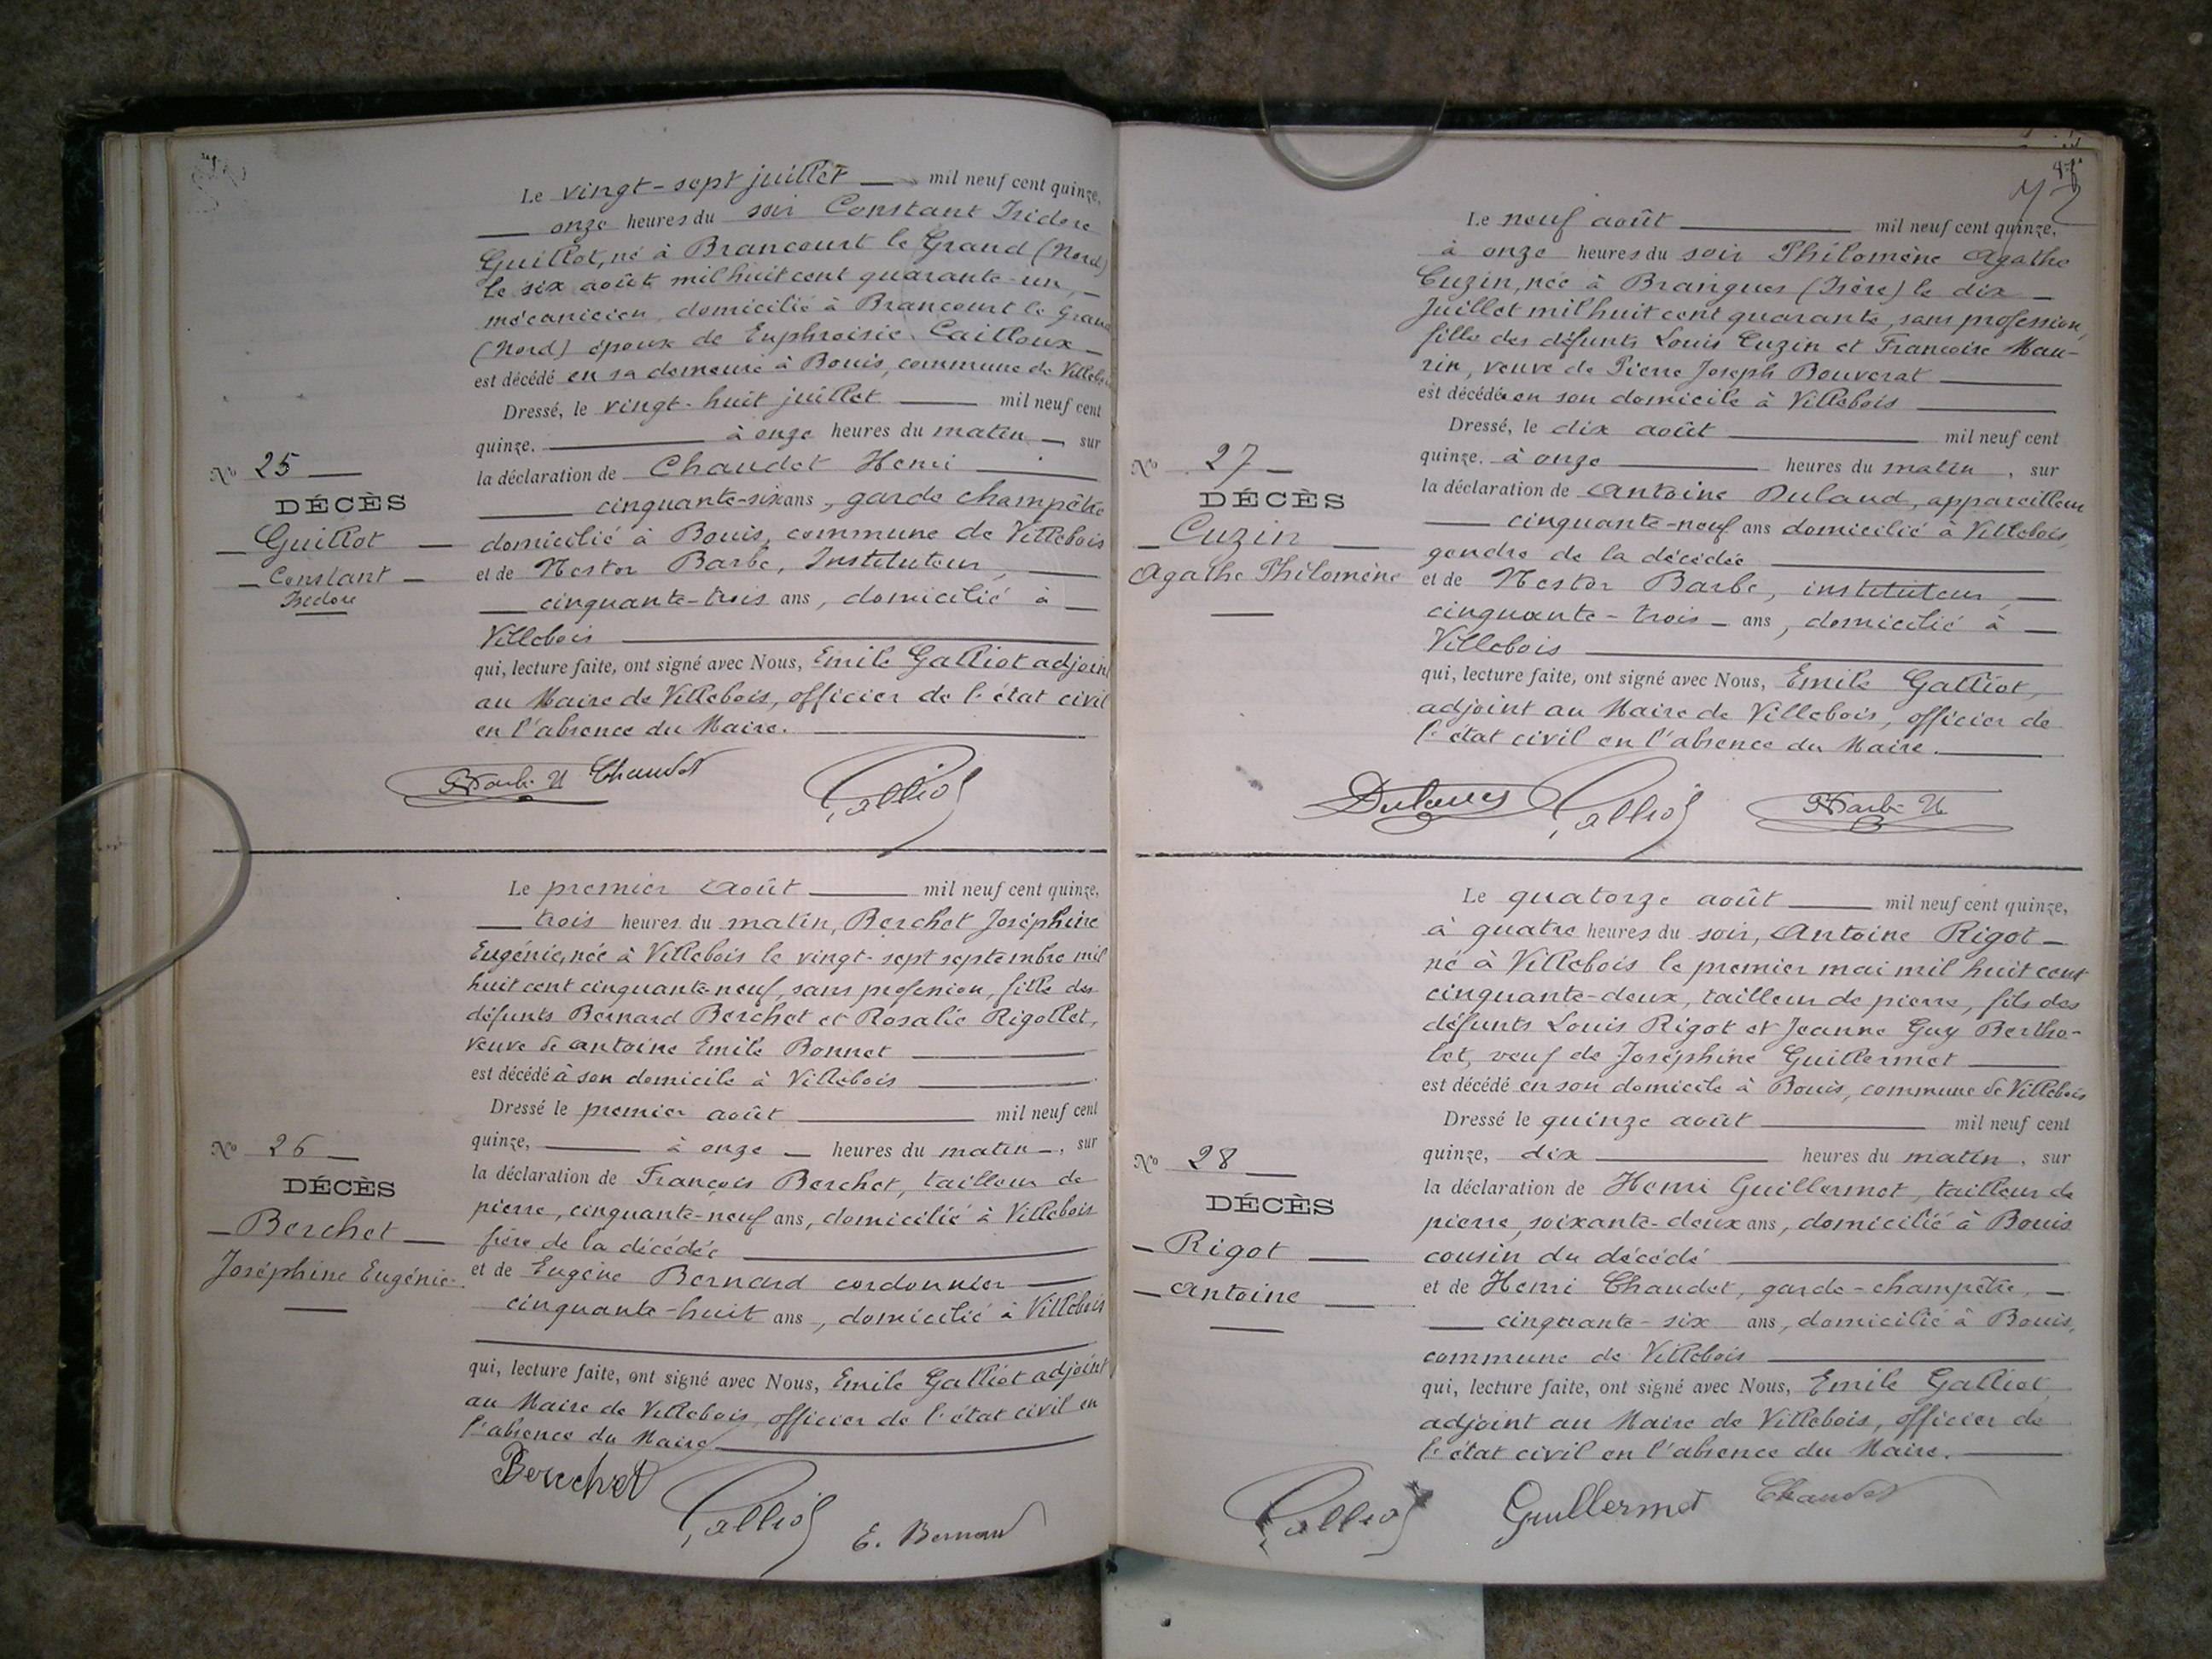 Le vingt-sept juillet — mil neuf cent quinze,
— onze heures du soir Constant Isidore
Guillot, né à Brancourt le Grand (Nord)
le six août mil huit cent quarante-un, —
mécanicien, domicilié à Brancourt le Grand
(Nord) époux de Euphroisie Cailloux —
est décédé en sa demeure à Bouis, commune de Villebois
Dressé, le vingt-huit juillet — mil neuf cent
quinze. — à onze heures du matin —, sur
No 25 —
la déclaration de Chaudet Henri —
DÉCÈS
— cinquante-six ans, garde champêtre
— Guillot —
domicilié à Bouis, commune de Villebois
— Constant —
et de Nestor Barbe, Instituteur, —
Isidore
— cinquante-trois ans, domicilié à —
Villebois —
qui, lecture faite, ont signé avec Nous, Emile Galliot adjoint
au Maire de Villebois, officier de l'état civil
en l'absence du Maire. —
Barbe N Chaudet Galliot
Le premier août — mil neuf cent quinze,
— trois heures du matin, Berchet Joséphine
Eugénie, née à Villebois le vingt-sept septembre mil
huit cent cinquante-neuf, sans profession, fille des
défunts Bernard Berchet et Rosalie Rigollet,
veuve de Antoine Emile Bonnet —
est décédé à son domicile à Villebois —
Dressé le premier août — mil neuf cent
No 26 —
quinze, — à onze — heures du matin —, sur
DÉCÈS
la déclaration de François Berchet, tailleur de
— Berchet —
pierre, cinquante-neuf ans, domicilié à Villebois
Joséphine Eugénie.
frère de la décédée —
et de Eugène Bernard cordonnier —
cinquante-huit ans, domicilié à Villebois
qui, lecture faite, ont signé avec Nous, Emile Galliot adjoint
au Maire de Villebois, officier de l'état civil en
l'absence du Maire —
Berchet Galliot E. Bernard
Le neuf août — mil neuf cent quinze,
à onze heures du soir Philomène Agathe
Cuzin, née à Brangues (Isère) le dix —
Juillet mil huit cent quarante, sans profession,
fille des défunts Louis Cuzin et Françoise Mau-
rin, veuve de Pierre Joseph Bouverat —
est décédée en son domicile à Villebois —
Dressé, le dix août — mil neuf cent
No 27 —
quinze. à onze — heures du matin, sur
DÉCÈS
la déclaration de Antoine Dulaud, appareilleur
— Cuzin —
— cinquante-neuf ans domicilié à Villebois,
gendre de la décédée —
Agathe Philomène
et de Nestor Barbe, instituteur, —
cinquante-trois — ans, domicilié à —
Villebois —
qui, lecture faite, ont signé avec Nous, Emile Galliot,
adjoint au Maire de Villebois, officier de
l'état civil en l'absence du Maire. —
Galliot Barbe N
Le quatorze août — mil neuf cent quinze,
à quatre heures du soir, Antoine Rigot —
né à Villebois le premier mai mil huit cent
cinquante-deux, tailleur de pierre, fils des
défunts Louis Rigot et Jeanne Guy Bertho-
let, veuf de Joséphine Guillermet —
est décédé en son domicile à Bouis, commune de Villebois
Dressé le quinze août — mil neuf cent
No 28 —
quinze, dix — heures du matin, sur
DÉCÈS
la déclaration de Henri Guillermet, tailleur de
pierre, soixante-deux ans, domicilié à Bouis
— Rigot —
cousin du décédé —
— Antoine —
et de Henri Chaudet, garde-champêtre, —
— cinquante-six ans, domicilié à Bouis,
commune de Villebois —
qui, lecture faite, ont signé avec Nous, Emile Galliot,
adjoint au Maire de Villebois, officier de
l'état civil en l'absence du Maire. —
Galliot Guillermet Chaudet